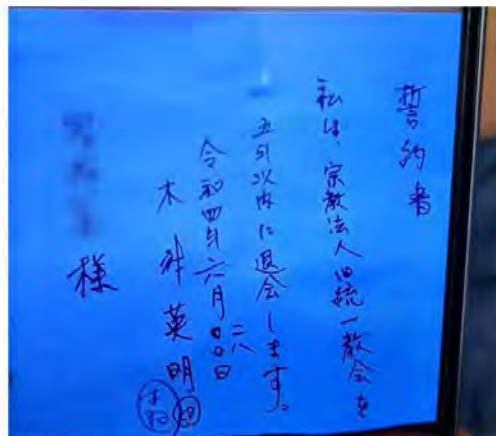 誓約書
私は、宗教法人旧統一教会を
五年以内に退会します。
令和四年六月二八日
英明 印
様